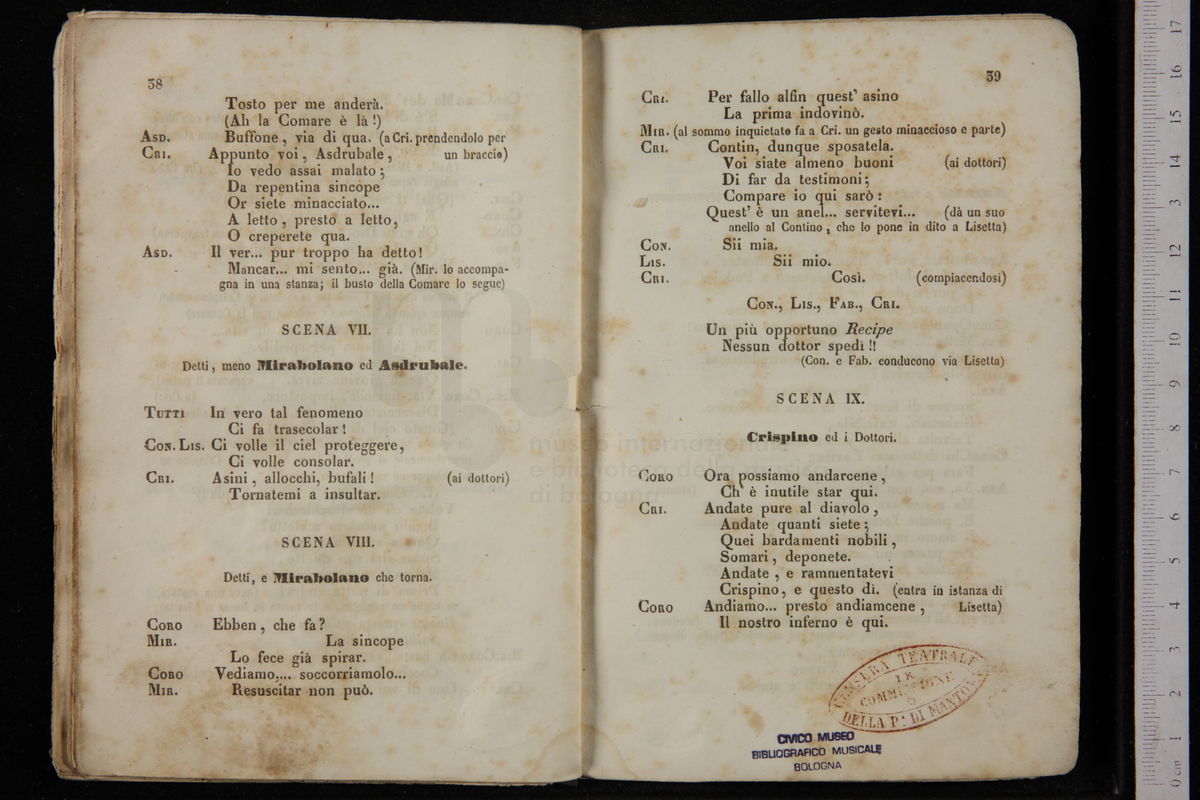 38
Tosto per me anderà.
(Ah la Comare è là!)
ASD. Buffone, via di qua. (a Cri. prendendolo per
CRI. Appunto voi, Asdrubale, un braccio)
Io vedo assai malato;
Da repentina sincope
Or siete minacciato...
A letto, presto a letto,
O creperete qua.
ASD. Il ver... pur troppo ha detto!
Mancar... mi sento... già. (Mir. lo accompa-
gna in una stanza; il busto della Comare lo segue)
SCENA VII.
Detti, meno Mirabolano ed Asdrubale.
TUTTI In vero tal fenomeno
Ci fa trasecolar!
CON. LIS. Ci volle il ciel proteggere,
Ci volle consolar.
CRI. Asini, allocchi, bufali! (ai dottori)
Tornatemi a insultar.
SCENA VIII.
Detti, e Mirabolano che torna.
CORO Ebben, che fa?
MIR. La sincope
Lo fece già spirar.
CORO Vediamo,... soccorriamolo...
MIR. Resuscitar non può.
39
CRI. Per fallo alfin quest' asino
La prima indovinò.
MIR. (al sommo inquietato fa a Cri. un gesto minaccioso e parte)
CRI. Contin, dunque sposatela.
Voi siate almeno buoni (ai dottori)
Di far da testimoni;
Compare io qui sarò:
Quest' è un anel... servitevi... (dà un suo
anello al Contino, che lo pone in dito a Lisetta)
CON. Sii mia.
LIS. Sii mio.
CRI. Così. (compiacendosi)
CON., LIS., FAB., CRI.
Un più opportuno Recipe
Nessun dottor spedì!!
(Con. e Fab. conducono via Lisetta)
SCENA IX.
Crispino ed i Dottori.
CORO Ora possiamo andarcene,
Ch' è inutile star qui.
CRI. Andate pure al diavolo,
Andate quanti siete;
Quei bardamenti nobili,
Somari, deponete.
Andate, e rammentatevi
Crispino, e questo dì. (entra in istanza di
CORO Andiamo... presto andiamcene, Lisetta)
Il nostro inferno è qui.
CENSURA TEATRALE
COMMISSIONE
DELLA P.A DI MANTOVA
CIVICO MUSEO
BIBLIOGRAFICO MUSICALE
BOLOGNA
museo internazionale
e biblioteca della musica
di bologna
0 cm 1 2 3 4 5 6 7 8 9 10 11 12 13 14 15 16 17